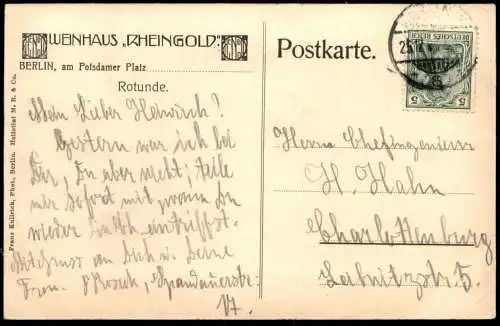 WEINHAUS „RHEINGOLD“
BERLIN, am Potsdamer Platz
Rotunde.
Mein Lieber Heinrich!
Gestern war ich bei
Dir, Du aber nicht; teile
mir sofort mit wann Du
wieder
Mit Gruss an Dich u. Deine
Frau. Spandauerstr.
Franz Kullrich, Phot., Berlin. Heliotint M. R. & Co.
Postkarte.
DEUTSCHES REICH
5 5
Herrn Chefingenieur
H. Hahn
Charlottenburg
Leibnitzstr. 5.